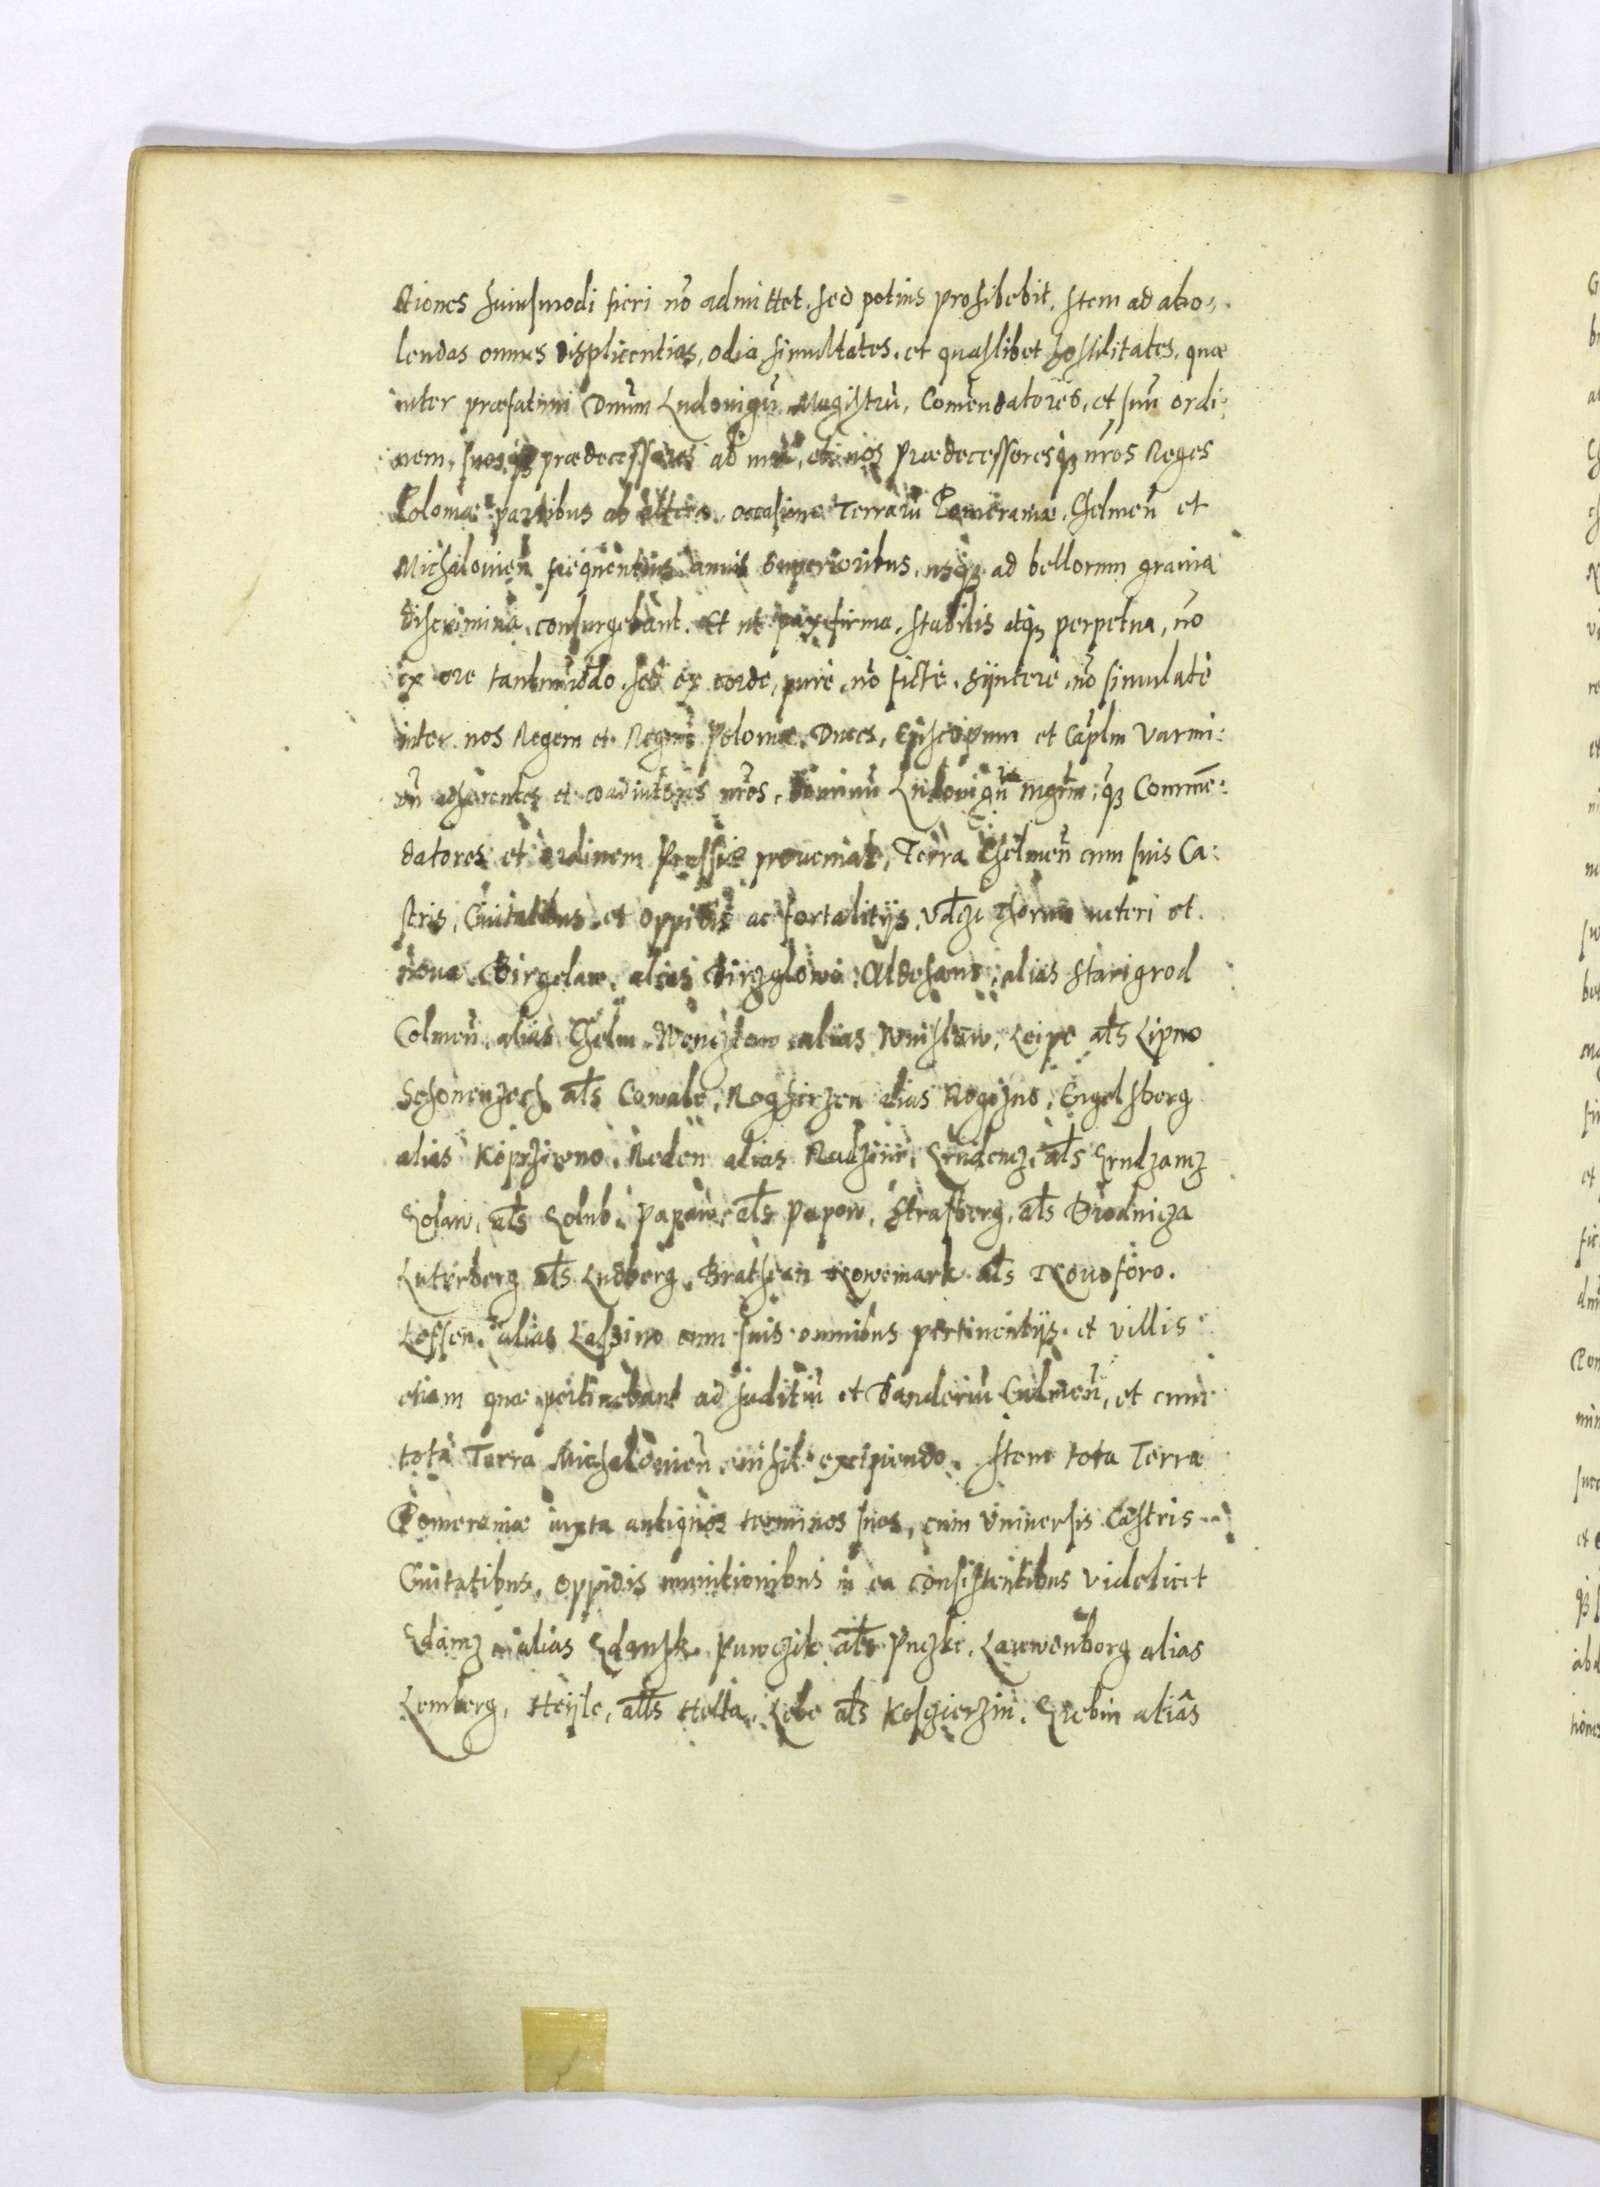 ctiones huiusmodi fieri nõ admittet, sed potius prohibebit. Item ad abo:
lendas omnes displicentias, odia, simultates, et quaslibet hostilitates, quæ
inter præfatum Dnum Ludouigũ Magistrũ, Comẽndatores, et suũ ordi:
nem, suosq́ȝ prædecessores ab unâ, et nos prædecessoresq́ȝ nr̃os Reges
Poloniæ partibus ab altera, occasione Terrarũ Pomeraniæ, Chelmeñ et
Michalouieñ frequentius annis superioribus, usq́ȝ ad bellorum grauia
discrimina consurgebant. Et ut pax firma, stabilis atq́ȝ perpetua, nõ
ex ore tantum̃odo, sed ex corde, purè, nõ fictè, syncerè, nõ simulatè
inter nos Regem et Regnũ Poloniæ, Duces, Episcopum et Cap̃lm Varmi:
eñ adhærentes et coadiutores nr̃os, dominũ Ludouigũ Mgr̃m, q́ȝ Commẽ:
datores et ordinem Prussiæ proueniat, Terra Chelmeñ cum suis Ca:
stris, Ciuitatibus et oppidis ac fortalitijs, vdczt Thorun ueteri et
noua Birgelaw, alias Birzglowa, Aldehaws, alias Starigrod
Colmeñ, alias Chelm, Wenczlaw alias Wnislaw, Leipe al̃s Lipno
Schonenzech al̃s Cowale, Roghirzen alias Rogozno, Engelsberg
alias Koprziwno, Reden alias Radzinr, Grudencz, al̃s Grudzancz
Golaw, al̃s Golub, Papaw al̃s Papow, Strasberg, al̃s Brodnicza
Luterberg al̃s Ludberg, Brathean Nowemark al̃s Nouoforo.
Lessen, alias Laszino cum suis omnibus pertinentijs et villis
etiam quæ pertinebant ad Iuditiũ et Banderiũ Culmeñ, et cum
tota Terra Michalouieñ, nihil excipiendo. Item tota Terra
Pomeraniæ iuxta antiquos terminos suos, cum Vniuersis Castris
Ciuitatibus, oppidis munitionibus in ea consistentibus videlicet
Gdancz alias Gdansk Puwczik al̃s Puczke, Lauwenborg alias
Lemberg, Heyle, al̃s Hella, Lebe al̃s Koszierzin, Grebin aliâs